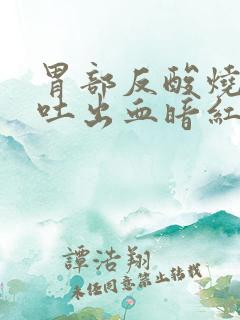 胃部反酸燒
吐出血暗紅
譚浩翔
未经同意禁止转载